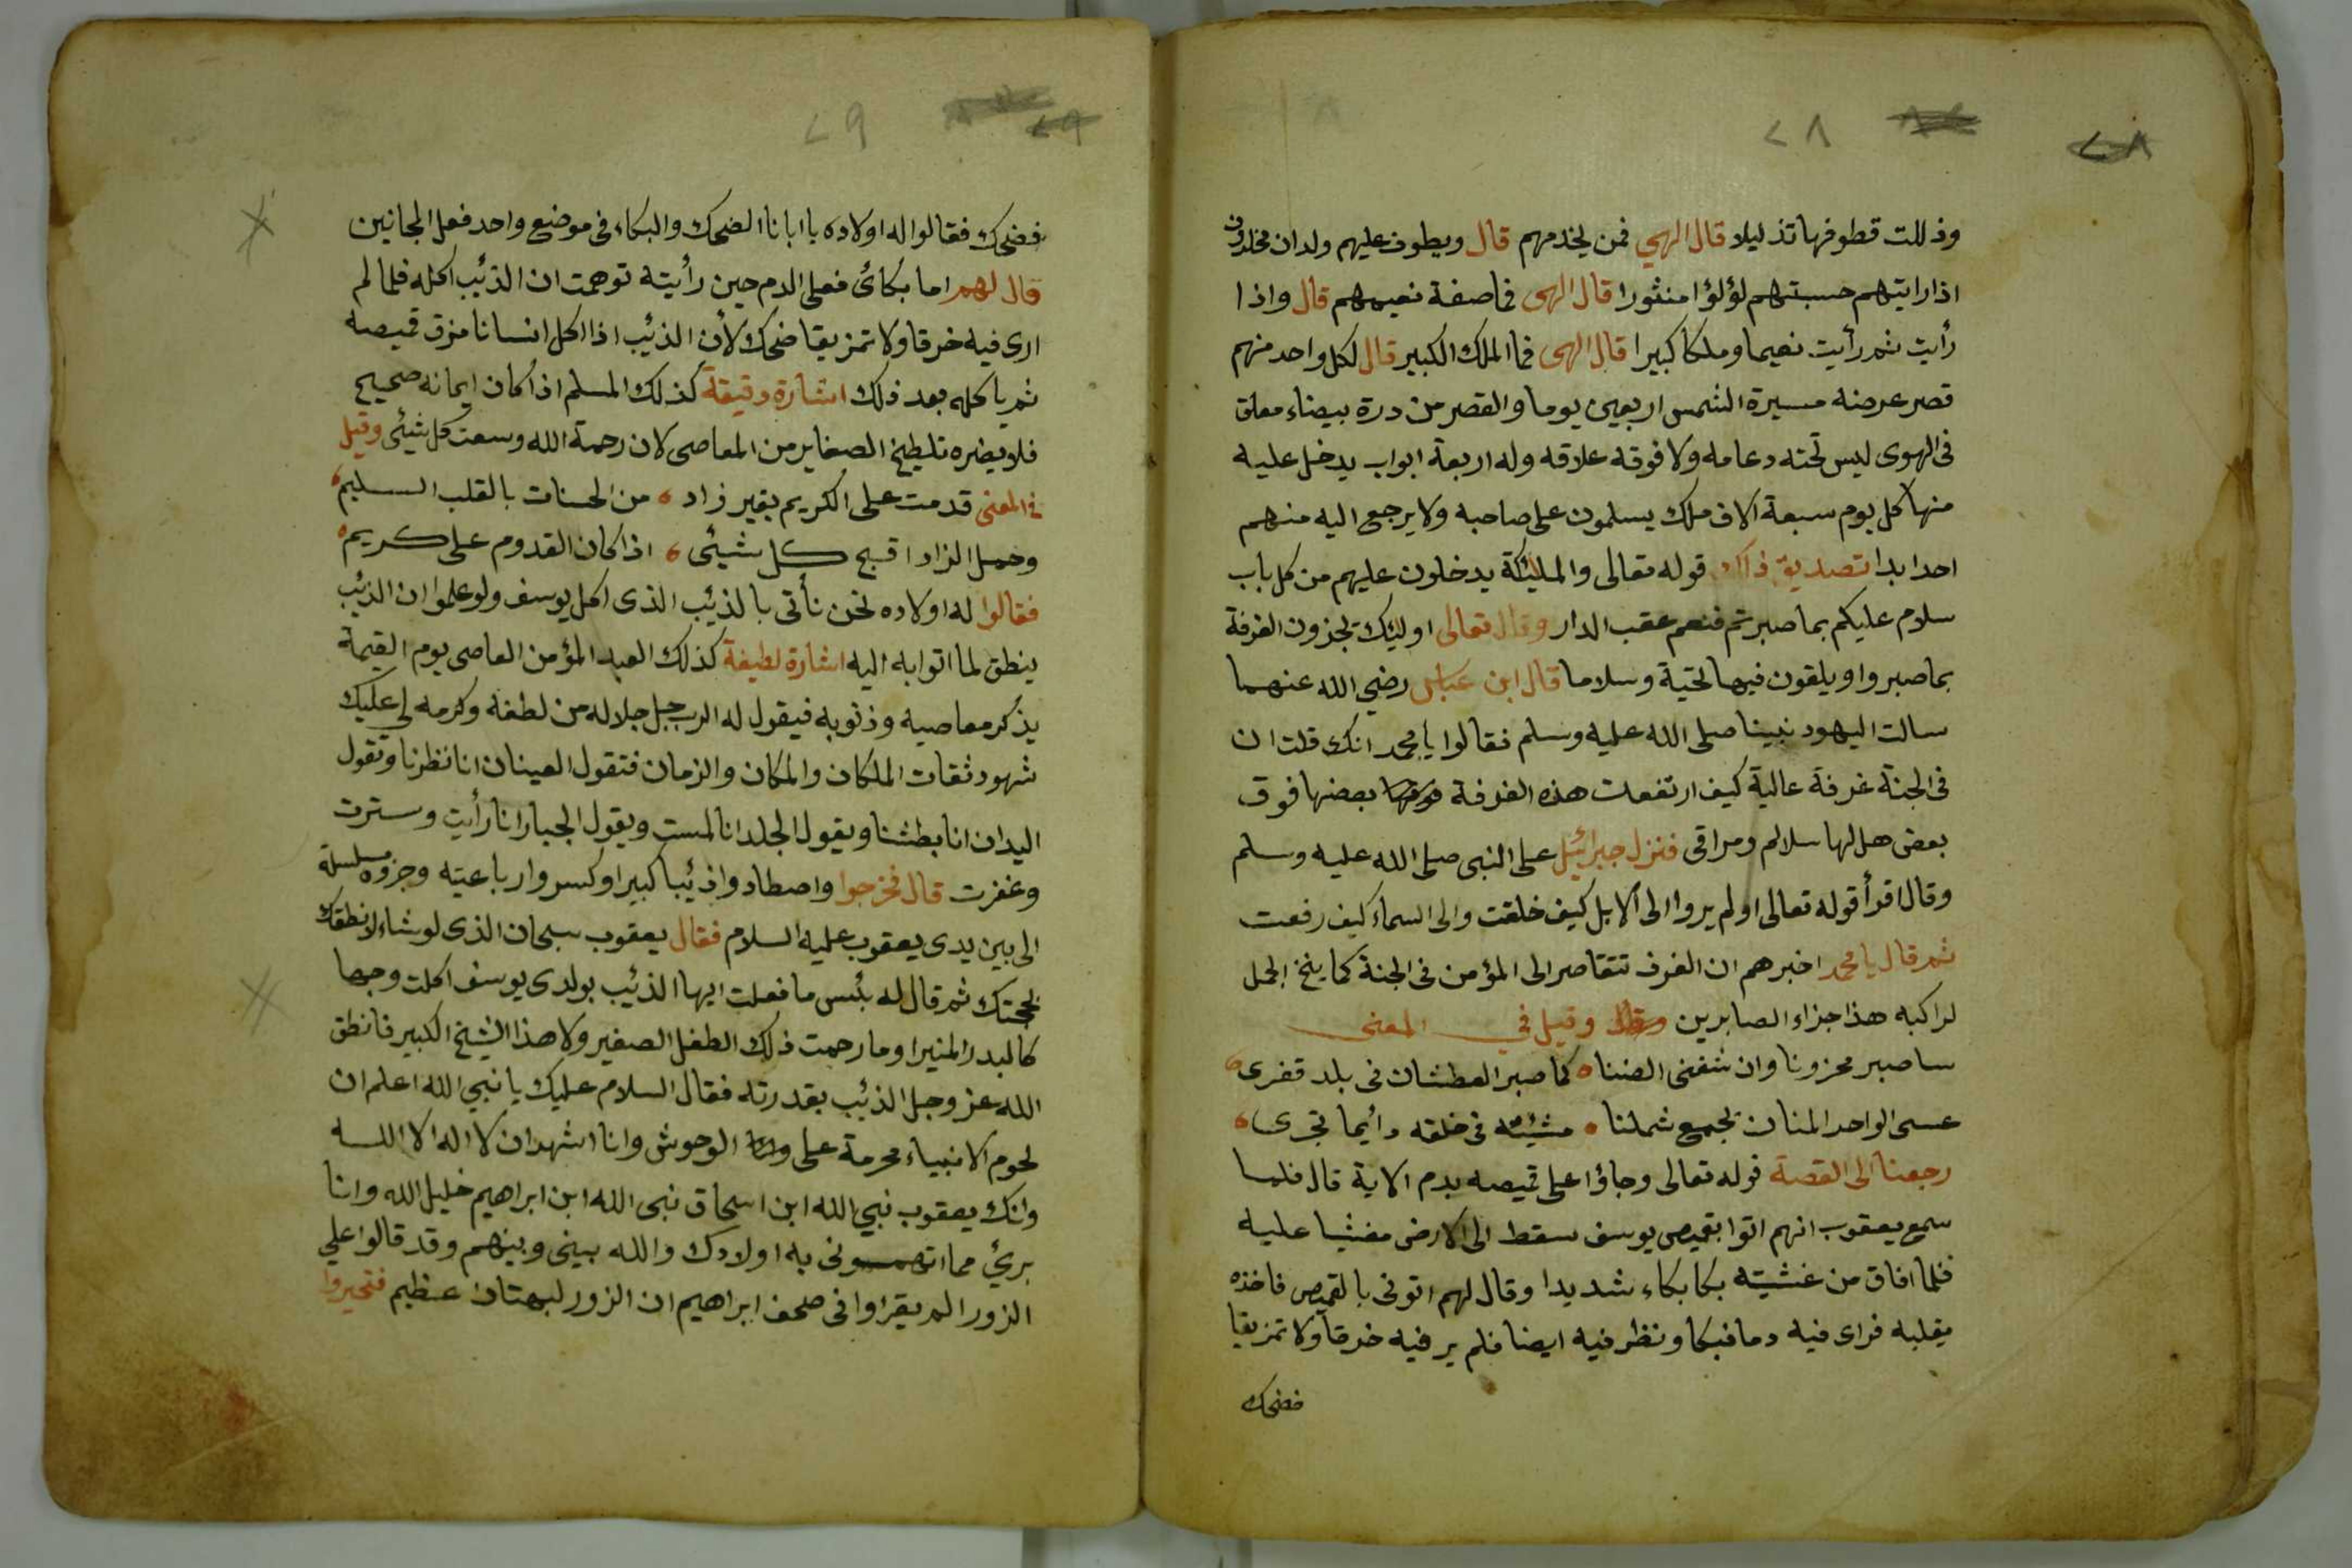 ٢٨
وذللت قطوفها تذليلا قال الهي فمن يخدمهم قال ويطوف عليهم ولدان مخلدون
اذا رايتهم حسبتهم لؤلؤا منثورا قال الهى فما صفة نعيمهم قال واذا
رأيت ثم رأيت نعيما وملكا كبيرا قال الهى فما الملك الكبير قال لكل واحد منهم
قصر عرضه مسيرة الشمس اربعين يوما والقصر من درة بيضاء معلق
فى الهوى ليس تحته دعامه ولا فوقه علاقه وله اربعة ابواب يدخل عليه
منها كل يوم سبعة الاف ملك يسلمون على صاحبه ولا يرجع اليه منهم
احد ابدا تصديق ذلك قوله تعالى والمليكة يدخلون عليهم من كل باب
سلام عليكم بما صبرتم فنعم عقب الدار وقال تعالى اوليك يجزون الغرفة
بما صبروا ويلقون فيها تحية وسلاما قال ابن عباس رضي الله عنهما
سالت اليهود نبينا صلى الله عليه وسلم فقالوا يا محمد انك قلت ان
فى الجنة غرفة عالية كيف ارتفعت هذه الغرفة بعضها فوق
بعض هل لها سلالم ومراقى فنزل جبرائيل على النبى صلى الله عليه وسلم
وقال اقرأ قوله تعالى اولم يروا الى الابل كيف خلقت والى السماء كيف رفعت
ثم قال يا محمد اخبرهم ان الغرف تتقاصر الى المؤمن فى الجنة كما ينخ الجمل
لراكبه هذا جزاء الصابرين وقيل في المعنى
ساصبر محزونا وان شفنى الضنا كما صبر العطشان فى بلد قفرى
عسى الواحد المنان يجمع شملنا مشيئته فى خلقه دائما تجرى
رجعنا الى القصة قوله تعالى وجاؤا على قميصه بدم الاية قال فلما
سمع يعقوب انهم اتوا بقميص يوسف سقط الى الارض مغشيا عليه
فلما افاق من غشيته بكا بكاء شديدا وقال لهم اتونى بالقميص فاخذه
يقلبه فراى فيه دما فبكا ونظر فيه ايضا فلم ير فيه خرقا ولا تمزيقا
فضحك
٢٩
فضحك فقالوا له اولاده يا ابانا الضحك والبكاء فى موضع واحد فعل المجانين
قال لهم اما بكائى فعلى الدم حين رأيته توهمت ان الذئيب اكله فلما لم
ارى فيه خرقا ولا تمزيقا ضحك لأن الذئيب اذا اكل انسانا مزق قميصه
ثم ياكله بعد ذلك اشارة دقيقة كذلك المسلم اذا كان ايمانه صحيح
فلا يضره تلطيخ الصغاير من المعاصى لان رحمة الله وسعت كل شيئى وقيل
في المعنى قدمت على الكريم بغير زاد من الحسنات بالقلب السليم
وحمل الزاد اقبح كل شيئى اذا كان القدوم على كريم
فقالوا له اولاده نحن نأتى بالذئيب الذى اكل يوسف ولو علموا ان الذئيب
ينطق لما اتوا به اليه اشارة لطيفة كذلك العبد المؤمن العاصى يوم القيمة
يذكر معاصيه وذنوبه فيقول له الرب جل جلاله من لطفه وكرمه لي عليك
شهود ثقات الملكان والمكان والزمان فتقول العينان انا نظرنا وتقول
اليدان انا بطشنا ويقول الجلد انا لمست ويقول الجبار انا رأيت وسترت
وغفرت قال فخرجوا واصطادوا ذئيبا كبيرا وكسروا رباعيته وجزوه سلسلة
الى بين يدى يعقوب عليه السلام فقال يعقوب سبحان الذى لو شاء لانطقك
بحجتك ثم قال له بئس ما فعلت ايها الذئيب بولدى يوسف اكلت وجها
كالبدر المنيرا وما رحمت ذلك الطفل الصغير ولا هذا الشيخ الكبير فانطق
الله عز وجل الذئيب بقدرته فقال السلام عليك يا نبي الله اعلم ان
لحوم الانبياء محرمة على الوحوش وانا اشهد ان لا اله الا الله
وانك يعقوب نبي الله ابن اسحاق نبى الله ابن ابراهيم خليل الله وانا
برئ مما اتهمونى به اولادك والله بينى وبينهم وقد قالوا علي
الزور الم يقراوا فى صحف ابراهيم ان الزور لبهتان عظيم فتحيروا